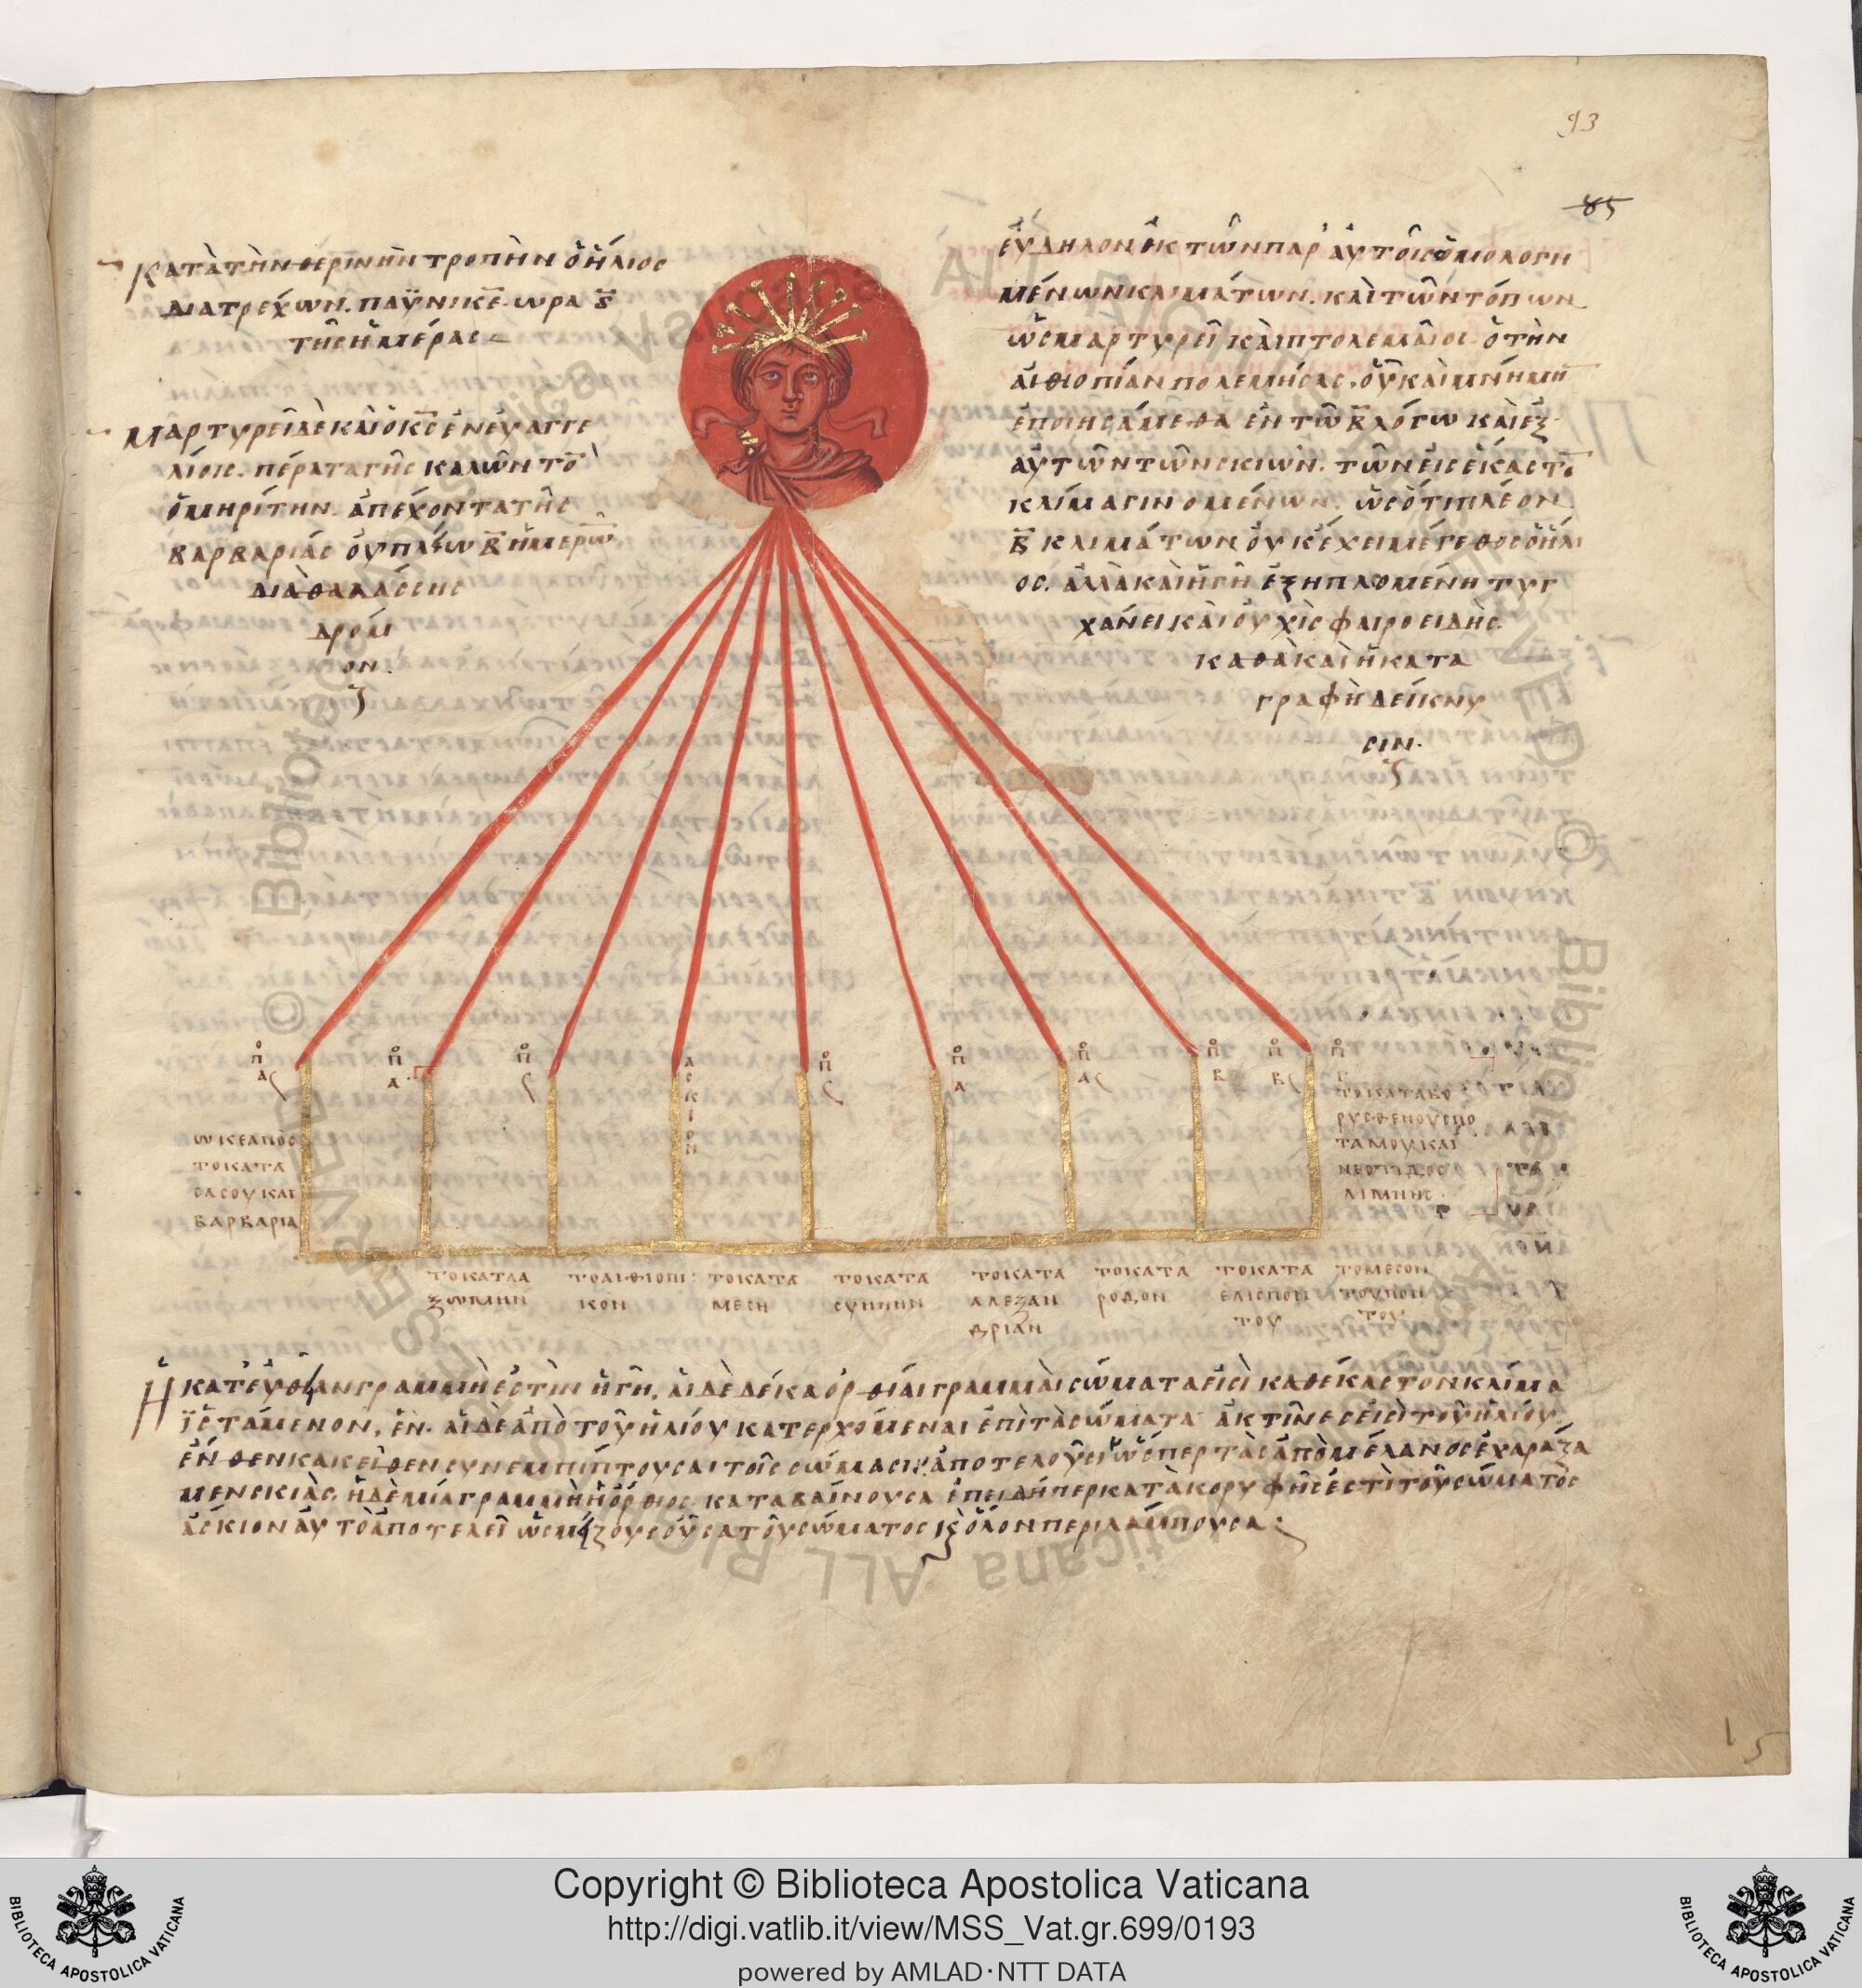 93
85
Κατὰ τὴν θερινὴν τροπὴν ὁ ἥλιος
διατρέχων. παϋνὶ κε̅ ὥρα ϛ̅
τῆς ἡμέρας
Μαρτυρεῖ δὲ καὶ ὁ κ̅ς̅ ἐν εὐαγγε
λίοις. πέρατα γῆς καλῶν τὸ
ὁμηρίτην. ἀπέχοντα τῆς
βαρβαρίας οὐ πλείω β̅ ἡμερῶ
διὰ θαλάσσης
δρόμ
ον.
εὔδηλον ἐκ τῶν παρ' αὐτοῖς ὁμολογη
μένων κλιμάτων. καὶ τῶν τόπων
ὡς μαρτυρεῖ καὶ πτολεμαῖος ὁ τὴν
αἰθιοπίαν πολεμήσας, οὗ καὶ μνήμη
ἐποιησάμεθα ἐν τῶ β̅ λόγω καὶ ἐξ
αὐτῶν τῶν σκιῶν. τῶν εἰς εἵκαστο
κλίμα γινομένων. ὡς ὅτι πλέον
β̅ κλιμάτων οὐκ ἔχει μέγεθος ὁ ἥλι
ος. ἀλλὰ καὶ ἡ γῆ ἐξηπλωμένη τυγ
χάνει καὶ οὐχὶ σφαιροειδὴς
καθὰ καὶ ἡ κατα
γραφὴ δείκνυ
σιν.
ἄσκιον
ωκεανος
το κατα
σασου και
βαρβαρια
το κατα βο
ρυσθενους πο
ταμου και
λιμνης
το κατ α
ξωμην
το αιθιοπι
κον
το κατα
μεση
το κατα
συηνην
το κατα
αλεξαν
δριαν
το κατα
ροδον
το κατα
ελισπον
του
το μεσον
του πον
του
Ἡ κατ' εὐθεῖαν γραμμὴ ἐστὶν ἡ γῆ, αἱ δὲ δέκα ὀρθίαι γραμμαὶ σώματα εἰσὶ καθ' ἕκαστον κλίμα
ϊστάμενον, ἕν. αἱ δὲ ἀπὸ τοῦ ἡλίου κατερχόμεναι ἐπὶ τὰ σώματα ἀκτῖνες εἰσὶ τοῦ ἡλίου
ἔνθεν κακεῖθεν συνεμπίπτουσαι τοῖς σώμασιν. ἀποτελοῦσι ὥσπερ τὰς ἀπὸ μέλανος ἐχαράξα
μεν σκιάς. ἡ δὲ μία γραμμὴ ἡ ὄρθιος καταβαίνουσα ἐπειδήπερ κατὰ κορυφῆς ἐστὶ τοῦ σώματος
ἄσκιον αὐτὸ ἀποτελεῖ ὡς μείζους οὖσα τοῦ σώματος κ̀ ὅλον περιλάμπουσα:
15
© Biblioteca Apostolica Vaticana ALL RIGHTS RESERVED
Copyright © Biblioteca Apostolica Vaticana
http://digi.vatlib.it/view/MSS_Vat.gr.699/0193
powered by AMLAD·NTT DATA
BIBLIOTECA APOSTOLICA VATICANA
BIBLIOTECA APOSTOLICA VATICANA